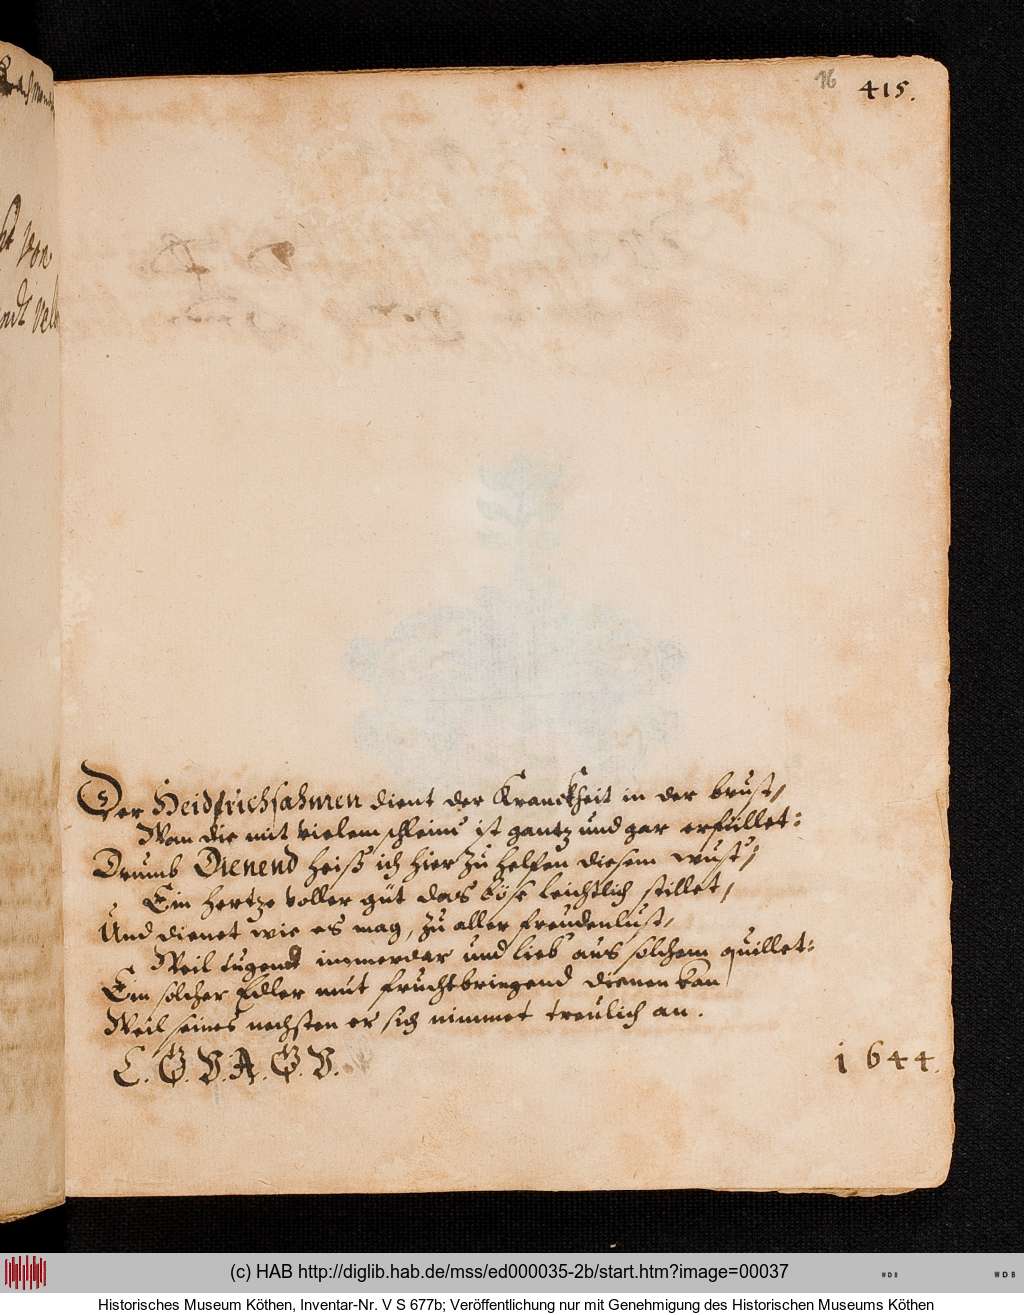 16
415.
von
Der Heidfrichsahmen dient der Kranckheit in der brust,
Wan die mit vielem schleim ist gantz und gar erfüllet:
Drumb Dienend heiß ich hier zu helfen diesem wust,
Ein hertze voller güt das böse leichtlich stillet,
Und dienet wie es mag, zu aller freudenlust,
Weil tugend immerdar und lieb aus solchem quillet:
Ein solcher Edler mut fruchtbringend dienen kan
Weil seines nechsten er sich nimmet treulich an.
C. G. V. A. G. V.
1644.
(c) HAB http://diglib.hab.de/mss/ed000035-2b/start.htm?image=00037
WDB
WDB
Historisches Museum Köthen, Inventar-Nr. V S 677b; Veröffentlichung nur mit Genehmigung des Historischen Museums Köthen